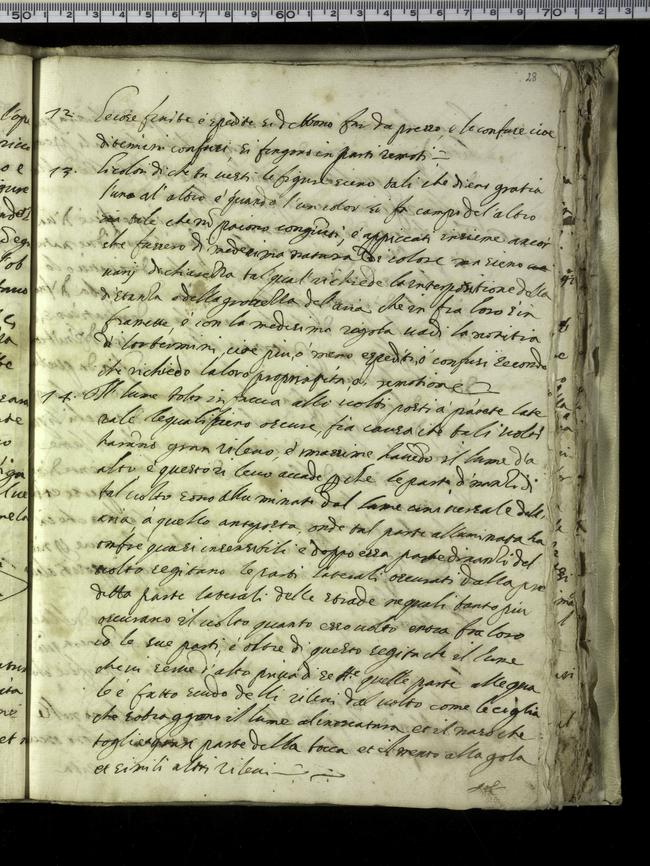 28
12. Le cose finite e spedite si debbono far da presso, e le confuse cioè
di termini confusi, si fingono in parti remoti
13. Li colori di che tu vesti le figure sieno tali che dieno gratia
l'uno al' altro e quando l'un color si fa campo del' altro
sia tale che non paiono congiunti, e appiccati insieme ancor
che fussero di medesima natura di colore ma sieno
varij di chiarezza tal qual' richiede la interpositione della
distantia e della grossezza del' aria che in fra loro s'in
framette, e con la medesima regola vadi la notitia
di lor termini, cioè più, o meno espediti, o confusi secondo
che richiede la loro propinquità, o remotione
14. Il lume tolto in faccia alli volti posti a parete late
rale le quali sieno oscure, fia causa che tali volti
haranno gran rilevo, e massime havendo il lume da
alto e questo rilevo accade perche le parte dinanzi di
tal volto sono alluminati dal lume universale dell
aria a quello anteposta, onde tal parte alluminata ha
ombre quasi insensibili e doppo essa parte dinanzi del
volto seguitano le parti laterali oscurati dalla pre
ditta parte laterali delle strade ne quali tanto più
oscurano il volto quanto esso volto entra fra loro
con le sue parti, e oltre di questo seguita che il lume
che vi scende d'alto priva di se quelle parte alle qua
le è fatto scudo delli rilevi del volto come le ciglia
che sottraggono il lume al incassatura et il naso che
toglie gran parte della bocca et il mento alla gola
et simili altri rilevi